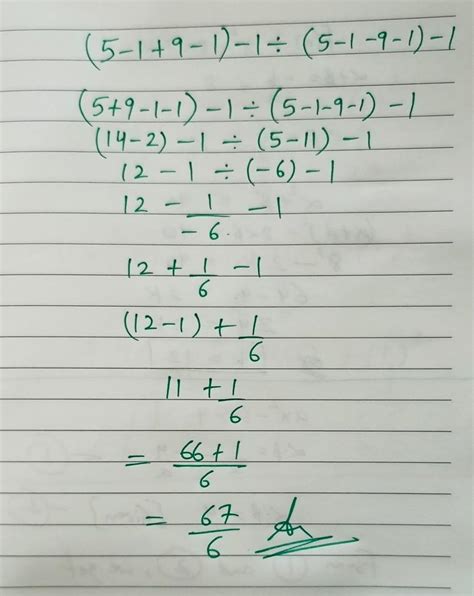 (5-1+9-1)-1÷(5-1-9-1)-1
(5+9-1-1)-1÷(5-1-9-1)-1
(14-2)-1÷(5-11)-1
12-1÷(-6)-1
12-1/-6-1
12+1/6-1
(12-1)+1/6
11+1/6
=66+1/6
=67/6